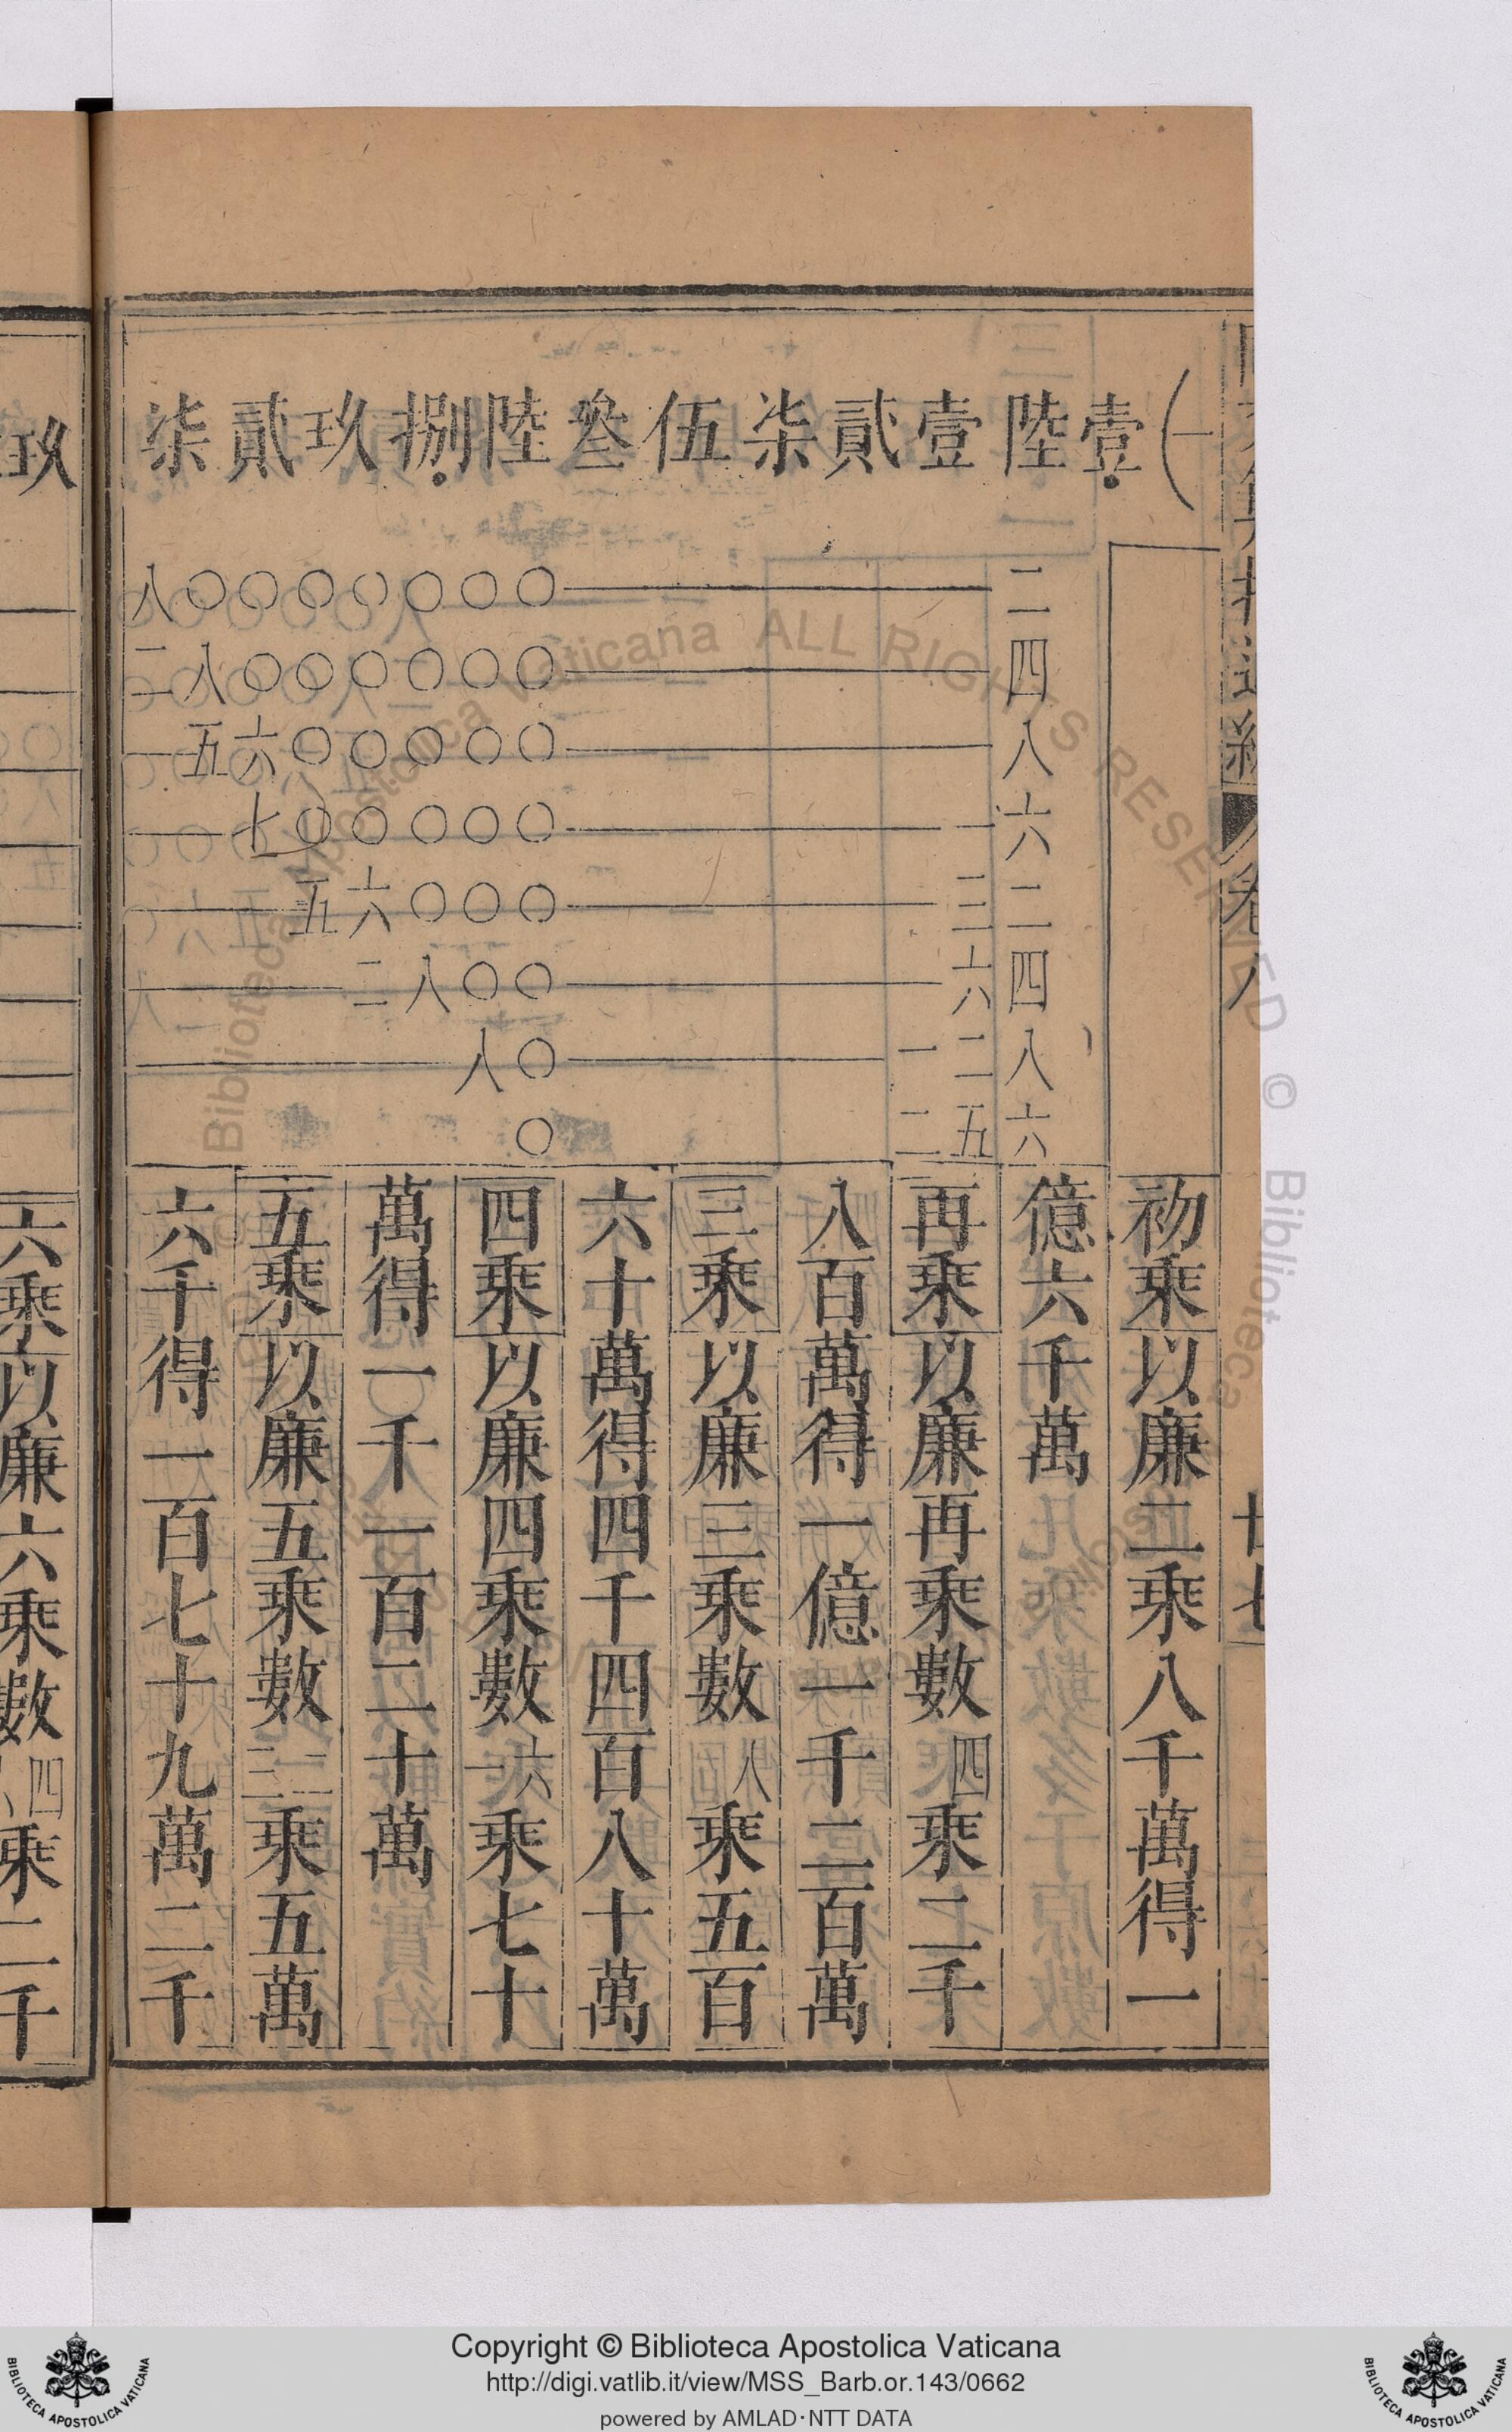 柒貳玖捌陸叁伍柒貳壹陸壹(一
八○○○○○○○二
二八○○○○○○四
五六○○○○○八
七○○○○○一六
五六○○○三二
二八○○六四
八○一二八
○二五六
初乘以廉二乘八千萬得一
億六千萬
再乘以廉再乘數四乘二千
八百萬得一億一千二百萬
三乘以廉三乘數八乘五百
六十萬得四千四百八十萬
四乘以廉四乘數一六乘七十
萬得一千一百二十萬
五乘以廉五乘數三二乘五萬
六千得一百七十九萬二千
玖
六乘以廉六乘數四乘二千